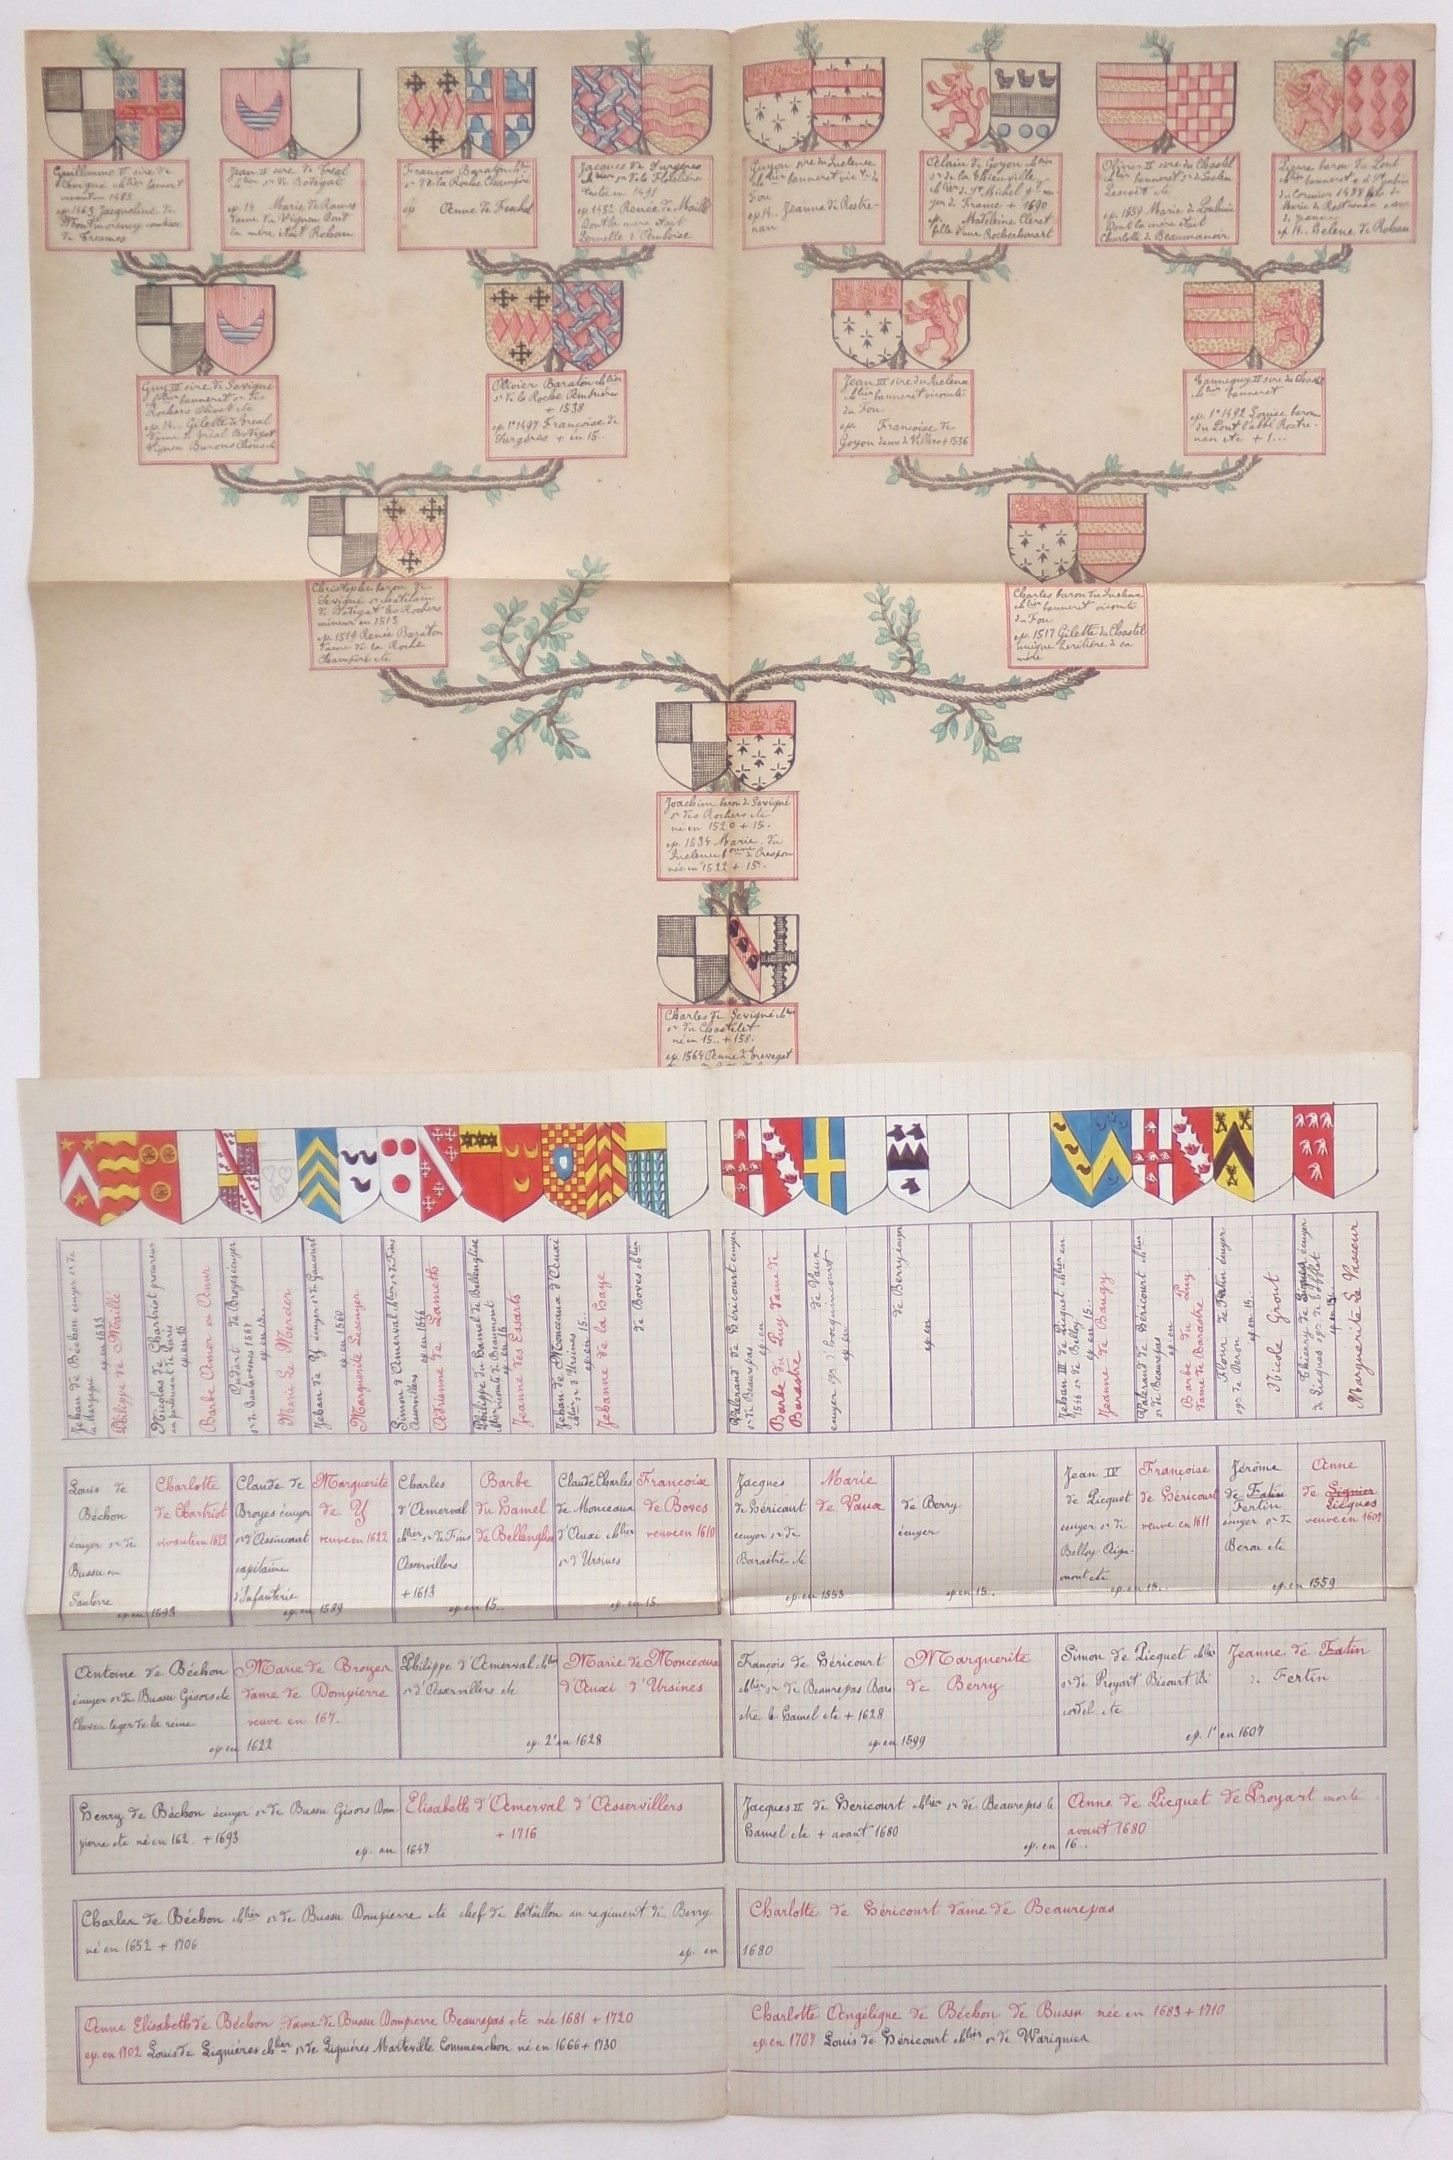 Guillaume sire de
Sevigné
vivant en 1483
ep. 1463 Jacqueline de
Montmorency comtesse
de Tresmes
Jean II sire de Treal
chlier sr de Botigat
ep. 14. Marie de Rames
dame du Vigneu dont
la mère était Rohan
François Baraton chlier
sr de la Roche Champiré
ep Anne de Feschal
Jacques de Surgères
chlier sr de la Flotelière
en 1491
ep. 1452 Renée de Maillé
dont la mère était
Pernelle d'Amboise
Guyon sire du Quelenec
chlier banneret victe du
Fou
ep. 14.. Jeanne de Rostre-
nan
Alain de Goyon chlier
sr de la Thieuville
chlier de St Michel gd
yer de France + 1490
ep. Madeleine Cleret
fille d'une Rochechouart
Olivier II sire du Chastel
chlier banneret
Lescoët etc
Marie de Poulmic
dont la mère était
Charlotte de Beaumanoir
Pierre baron du Pont
chlier banneret + à St Aubin
du Cormier 1488 fils de
Marie de Rostrenan
de Jeanne
ep 14.. Helene de Rohan
Guy III sire de Sevigné
chlier banneret sr des
Rochers Olivet etc
ep. 14.. Gilette de Treal
dame de Treal Botigat
Vigneu Buron
Olivier Baraton chlier
sr de la Roche Ambrières
+ 1538
ep. 1° 1497 Françoise de
Surgères + en 15..
Jean III sire du Quelenec
chlier banneret vicomte
du Fou
ep. Françoise de
Goyon dame de Villers + 1536
Tanneguy II sire du Chastel
chlier banneret
ep. 1° 1492 Louise baronne
du Pont l'abbé Rostre-
nan etc + 1...
Christophe baron de
Sevigné sr chatelain
de Botigat des Rochers
mineur en 1513
ep. 1519 Renée Baraton
dame de la Roche
Champiré etc
Charles baron du Quelenec
chlier banneret vicomte
du Fou
ep. 1517 Gilette du Chastel
unique heritière de sa
mère
Joachim baron de Sevigné
sr des Rochers etc
né en 1520 + 15..
ep. 1534 Marie du
Quelenec bonne de Crespon
née en 1522 + 15..
Charles de Sevigné chlier
sr du Chastelet
né en 15.. + 158.
ep. 1564 Anne de Trevegat
Jehan de Béchon écuyer sr de
la Hargerie
ep en 1533
Philippe de Maillé
Nicolas de Chartriot procureur
au parlement de Paris
ep en 15
Barbe Amer ou Amer
Oudart de Broyes écuyer
sr de Bautavesnes 1567
ep en 15..
Marie Le Mercier
Jehan de Y écuyer sr de Gaucourt
ep en 1560
Marguerite Lesuyer
Simon d'Amerval chlier sr de Fins
Asservillers
ep en 1546
Adrienne de Lameth
Philippe du Hamel de Bellenglise
chlier vicomte de Beaumont
ep en 15
Jeanne des Essarts
Jehan de Monceaux d'Auxi
chlier sr d'Ursines
ep en 15..
Jehanne de la Haye
de Boves chlier
Valerand de Héricourt écuyer
sr de Beaurepas
ep en
Barbe du Puy dame de
Barastre
de Vaux
écuyer sgr d'hocquincourt
ep en
de Berry écuyer
ep en
Jehan III de Picquet chlier en
1546 sr de Belloy
ep en 15..
Jeanne de Baugy
Valerand de Héricourt chlier
sr de Beaurepas
ep en
Barbe du Puy
dame de Barastre
Flour de Fertin écuyer
sgr de Beron
ep en 15..
Nicole Grout
Thierry de Lignier écuyer
de Licques sgr de Tofflet
ep en 15
Marguerite Le Vasseur
Louis de
Béchon
écuyer sr de
Bussu en
Santerre
ep en 1593
Charlotte
de Chartriot
vivante en 1622
Claude de
Broyes écuyer
sr d'Assincourt
capitaine
d'Infanterie
ep en 1589
Marguerite
de Y
veuve en 1622
Charles
d'Amerval
chlier sr de Fins
Asservillers
+ 1613
ep. en 15..
Barbe
du Hamel
de Bellenglise
Claude Charles
de Monceaux
d'Auxi chlier
sr d'Ursines
ep. en 15..
Francoise
de Boves
veuve en 1610
Jacques
de Héricourt
écuyer sr de
Barastre etc
ep. en 1553
Marie
de Vaux
de Berry
écuyer
ep en 15..
Jean IV
de Picquet
écuyer sr de
Belloy Aigu-
mont etc
ep en 15..
Françoise
de Héricourt
veuve en 1611
Jérôme
de Fatin
Fertin
écuyer sr de
Berou etc
ep. en 1559
Anne
de Lignier
Licques
veuve en 1607
Antoine de Béchon
écuyer sr de Bussu Gisors etc
Chevau leger de la reine
ep en 1622
Marie de Broyes
dame de Dompierre
veuve en 167.
Philippe d'Amerval chlier
sr d'Asservillers etc
ep. 2° en 1628
Marie de Monceaux
d'Auxi d'Ursines
François de Héricourt
chlier sr de Beaurepas Bara
stre le Hamel etc + 1628
ep en 1599
Marguerite
de Berry
Simon de Picquet chlier
sr de Proyart Bécourt Bé
cordel etc
ep. 1° en 1607
Jeanne de Fatin
de Fertin
Henry de Béchon écuyer sr de Bussu Gisors Dom-
pierre etc né en 162. + 1693
ep. en 1647
Elisabeth d'Amerval d'Asservillers
+ 1716
Jacques II de Hericourt chlier sr de Beaurepas le
Hamel etc + avant 1680
ep. en 16..
Anne de Picquet de Proyart morte
avant 1680
Charles de Béchon chlier sr de Bussu Dompierre etc chef de bataillon au regiment de Berry
né en 1652 + 1706
ep. en 1680
Charlotte de Héricourt dame de Beaurepas
Anne Elisabeth de Béchon dame de Bussu Dompierre Beaurepas etc née 1681 + 1720
ep. en 1702 Louis de Lignières chlier sr de Lignières Marteville Commenchon né en 1666 + 1730
Charlotte Angélique de Béchon de Bussu née en 1683 + 1710
ep. en 1707 Louis de Héricourt chlier sr de Warignier